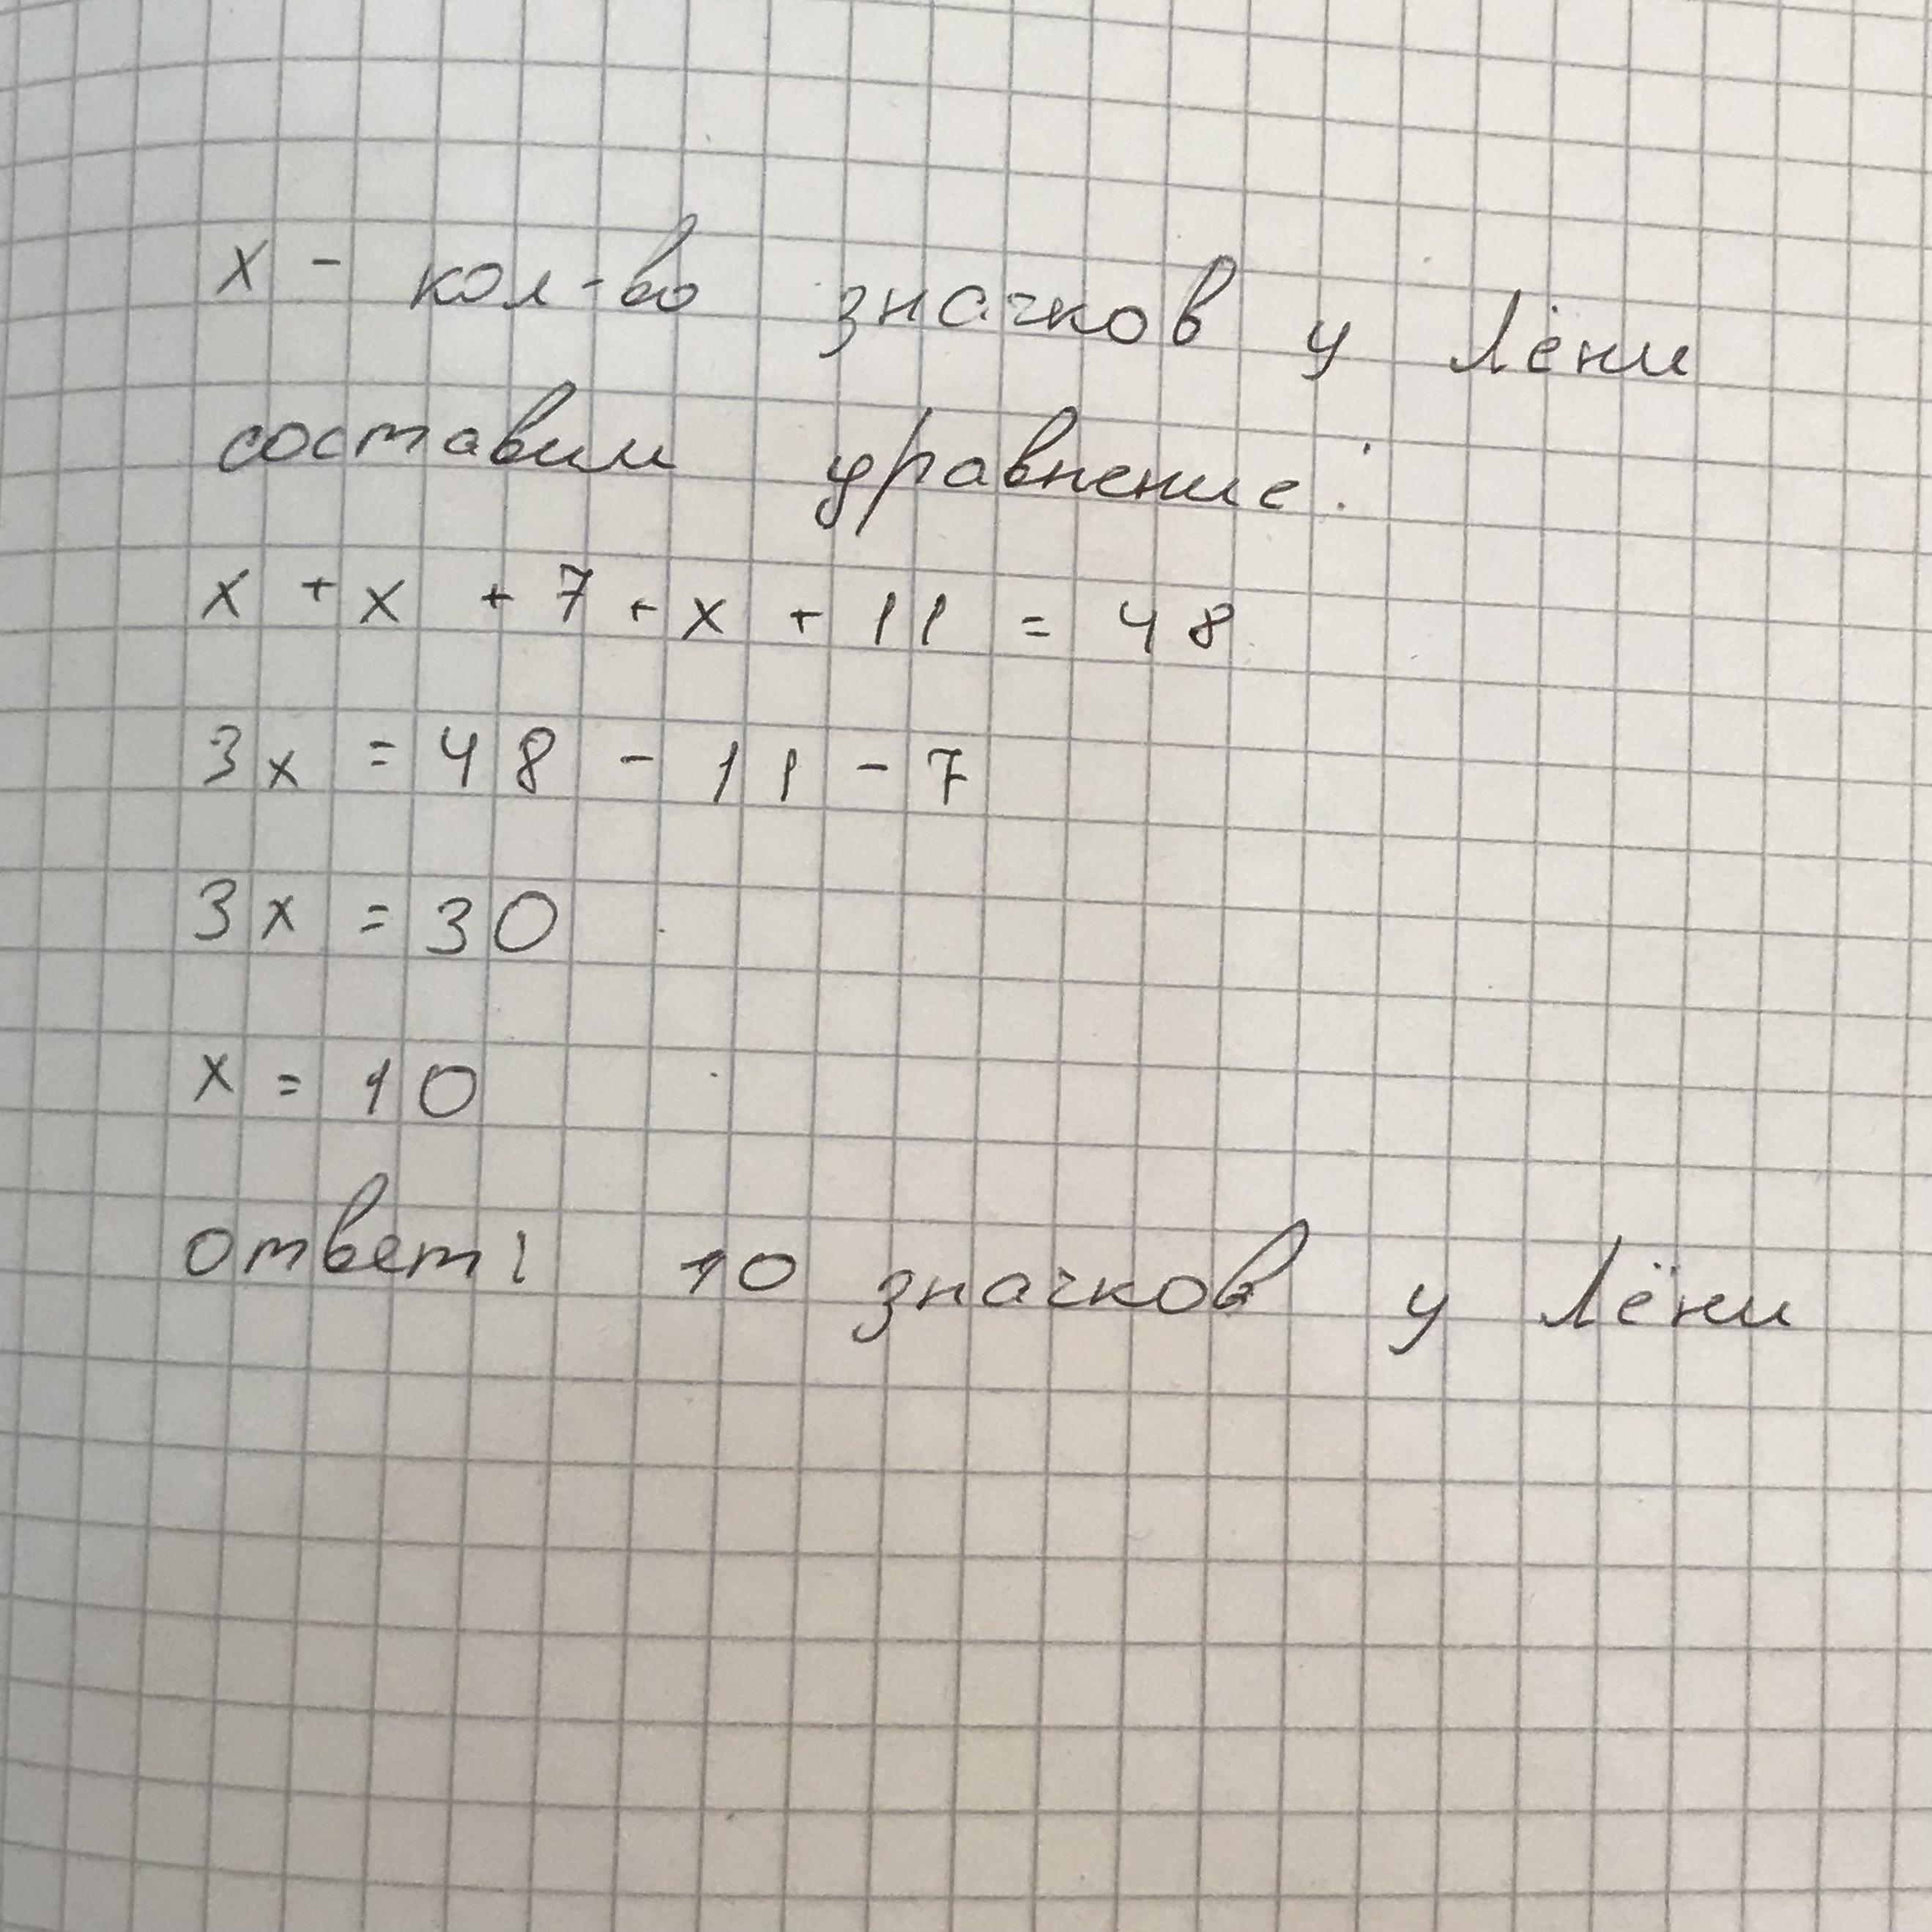 x - кол-во значков у Лёни
составим уравнение:
x + x + 7 + x + 11 = 48
3x = 48 - 11 - 7
3x = 30
x = 10
ответ: 10 значков у Лёни